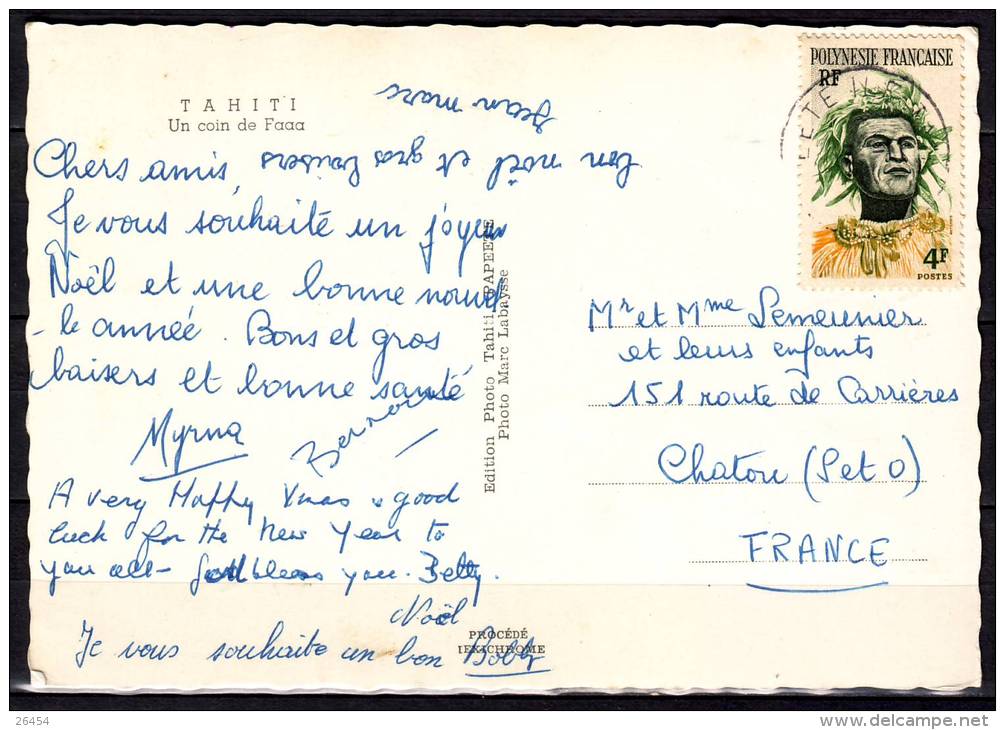 TAHITI
Un coin de Faaa
Jean marc
bon noël et gros baisers
Chers amis,
Je vous souhaite un joyeux
Noël et une bonne nouvel
-le année. Bons et gros
baisers et bonne santé
Myrna
Bernard
A very Happy Xmas & good
luck for the New Year to
you all - God bless you. Betty.
Noël
Je vous souhaite un bon Bobby
Edition Photo Tahiti PAPEETE
Photo Marc Labaysse
PROCÉDÉ
IEKTCHROME
POLYNESIE FRANCAISE
RF
4F
POSTES
Mr et Mme Lemeunier
et leurs enfants
151 route de Carrières
Chatou (S et O)
FRANCE
26454
www.delcampe.net